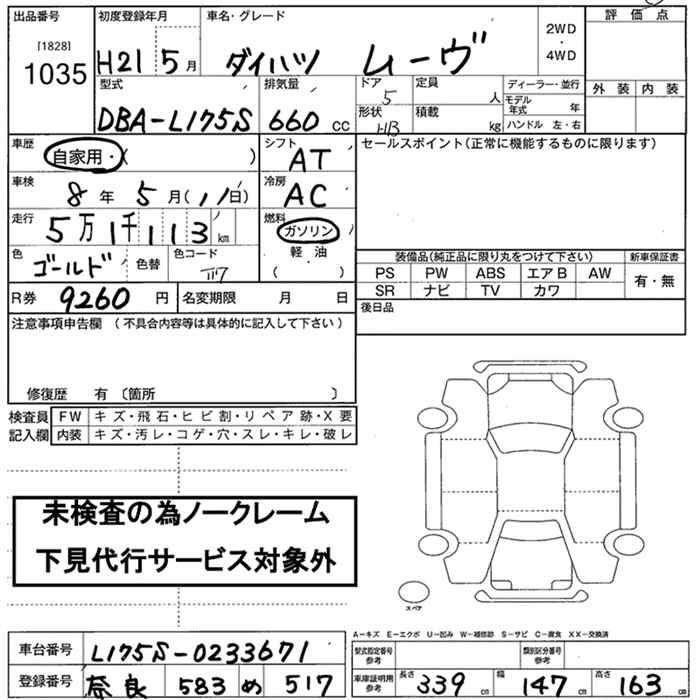 出品番号 初度登録年月 車名・グレード 2WD ・ 4WD 評価点
[1828]
1035 H21 5月 ダイハツ ムーヴ
外装 内装
型式 排気量 ドア 定員 ディーラー・並行
DBA-L175S 660 CC 5 人 モデル年式 年
形状 積載
HB kg ハンドル 左・右
車歴 自家用・( ) シフト AT セールスポイント(正常に機能するものに限ります)
車検 8年 5月(11日) 冷房 AC
走行 5万1千113 km 燃料 ガソリン
軽油
( )
色 ゴールド 色替 色コード
装備品(純正品に限り丸をつけて下さい) 新車保証書
PS PW ABS エアB AW 有・無
SR ナビ TV カワ
R券 9260円 名変期限 月 日 後日品
注意事項申告欄 (不具合内容等は具体的に記入して下さい)
修復歴 有 〔箇所 〕
検査員 FW キズ・飛石・ヒビ割・リペア跡・X要
記入欄 内装 キズ・汚レ・コゲ・穴・スレ・キレ・破レ
未検査の為ノークレーム
下見代行サービス対象外
スペア
A−キズ E−エクボ U−凹み W−補修跡 S−サビ C−腐食 XX−交換済
車台番号 L175S-0233671 型式指定番号 参考 類別区分番号 参考
登録番号 奈良 583 め 517 車庫証明用 参考 長さ 339 cm 幅 147 cm 高さ 163 cm